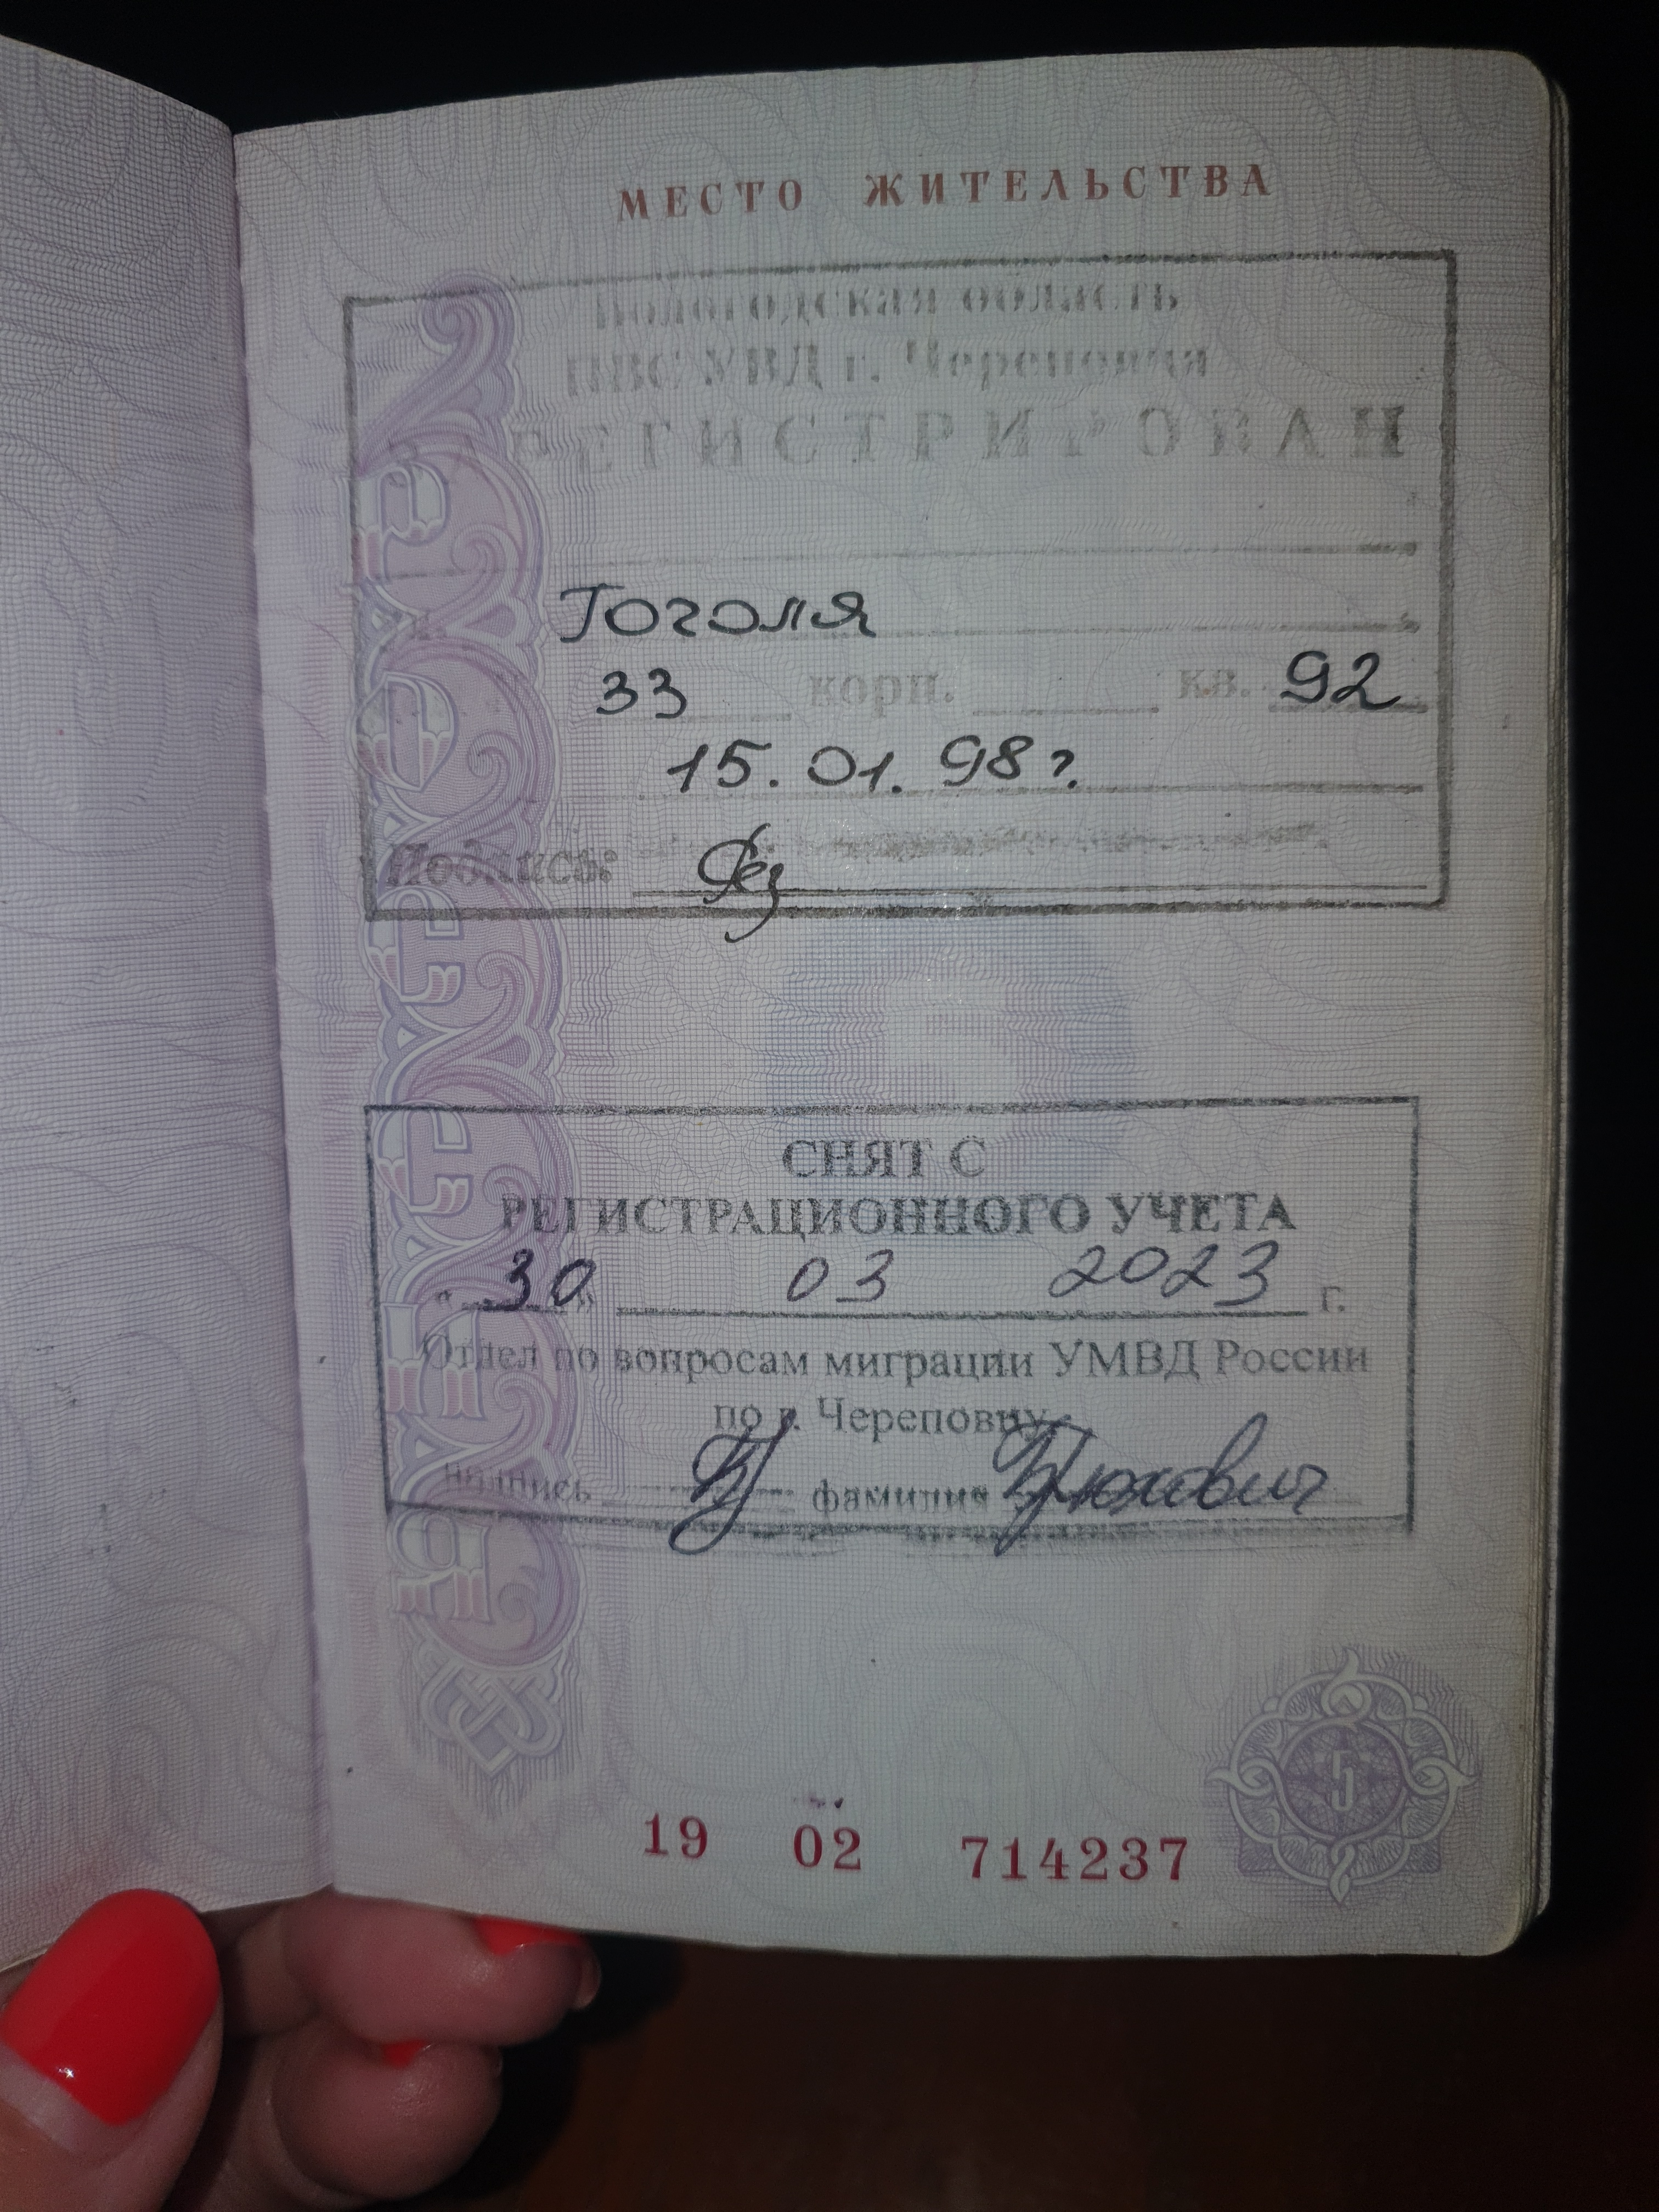 МЕСТО ЖИТЕЛЬСТВА
Вологодская область
ПВС УВД г. Череповца
ЗАРЕГИСТРИРОВАН
Гоголя
33 корп. кв. 92
15.01.98 г.
Подпись:
СНЯТ С
РЕГИСТРАЦИОННОГО УЧЕТА
"30" 03 2023 г.
Отдел по вопросам миграции УМВД России
по г. Череповцу
подпись фамилия Брюхович
5
19 02 714237